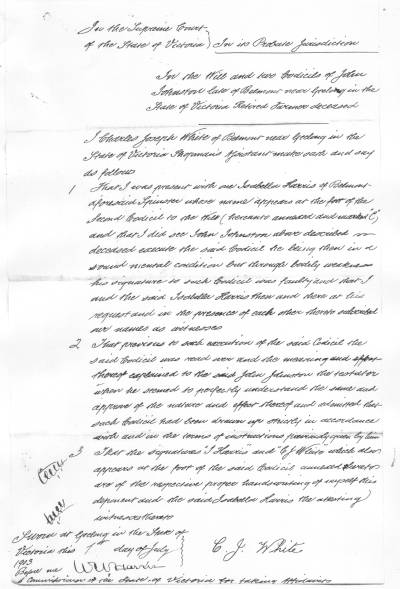 In the Supreme Court
of the State of Victoria } In its Probate Jurisdiction
In the Will and two Codicils of John
Johnston late of Belmont near Geelong in the
State of Victoria Retired Farmer deceased
I Charles Joseph White of Belmont near Geelong in the
State of Victoria Assistant make oath and say
as follows
1 That I was present with one Isabella Harris of Belmont
aforesaid Spinster whose name appears at the foot of the
Second Codicil to the Will (hereunto annexed and marked
and that I did see John Johnston above described
deceased execute the said Codicil he being then in a
sound mental condition but through bodily weakness
his signature to such Codicil was faulty and that I
and the said Isabella Harris then and there at his
request and in the presence of each other thereto subscribed
our names as witnesses
2 That previous to such execution of the said Codicil the
said Codicil was read over and the meaning and effect
thereof explained to the said John Johnston the testator
when he seemed to perfectly understand the same and
approve of the nature and effect thereof and admitted that
such Codicil had been drawn up strictly in accordance
with and in the terms of instructions previously given by him
3 That the signatures "I Harris" and "C J White" which also
appears at the foot of the said Codicil annexed hereto
are of the respective proper handwriting of myself this
deponent and the said Isabella Harris the attesting
witnesses thereto
Sworn at Geelong in the State of
Victoria this 1st day of July
1903
Before me
C. J. White
A Commissioner of the State of Victoria for taking Affidavits